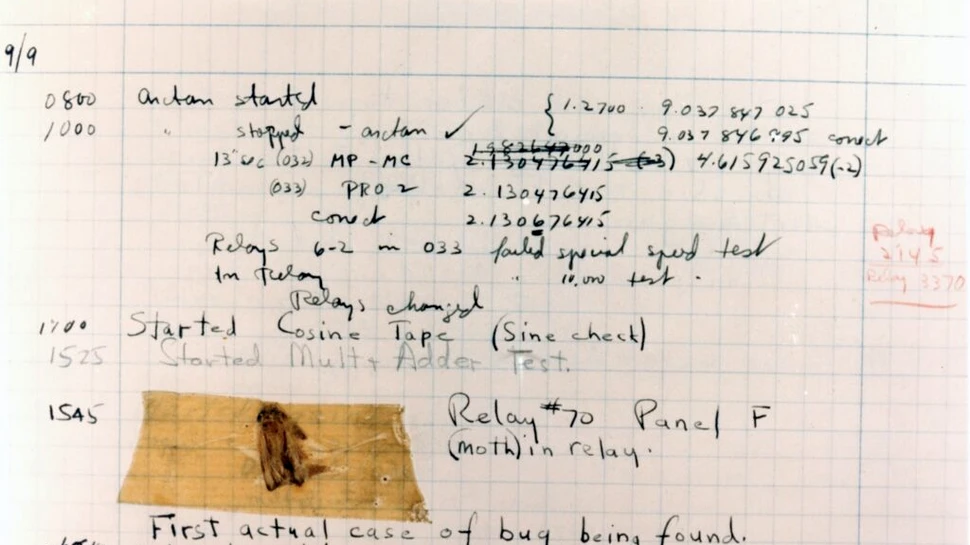 9/9
0800 arctan started { 1.2700 9.037 847 025
1000 " stopped - arctan ✓ 9.037 846 995 conect
1982647000
13"sec (032) MP - MC 2.130476415 (-3) 4.615925059(-2)
(033) PRO 2 2.130476415
conect 2.130676415
Relays 6-2 in 033 failed special speed test
In Relay " 10,000 test .
Relay
2145
Relay 3370
Relays changed
1700 Started Cosine Tape (Sine check)
1525 Started Mult+ Adder Test.
1545 Relay #70 Panel F
(moth) in relay.
First actual case of bug being found.